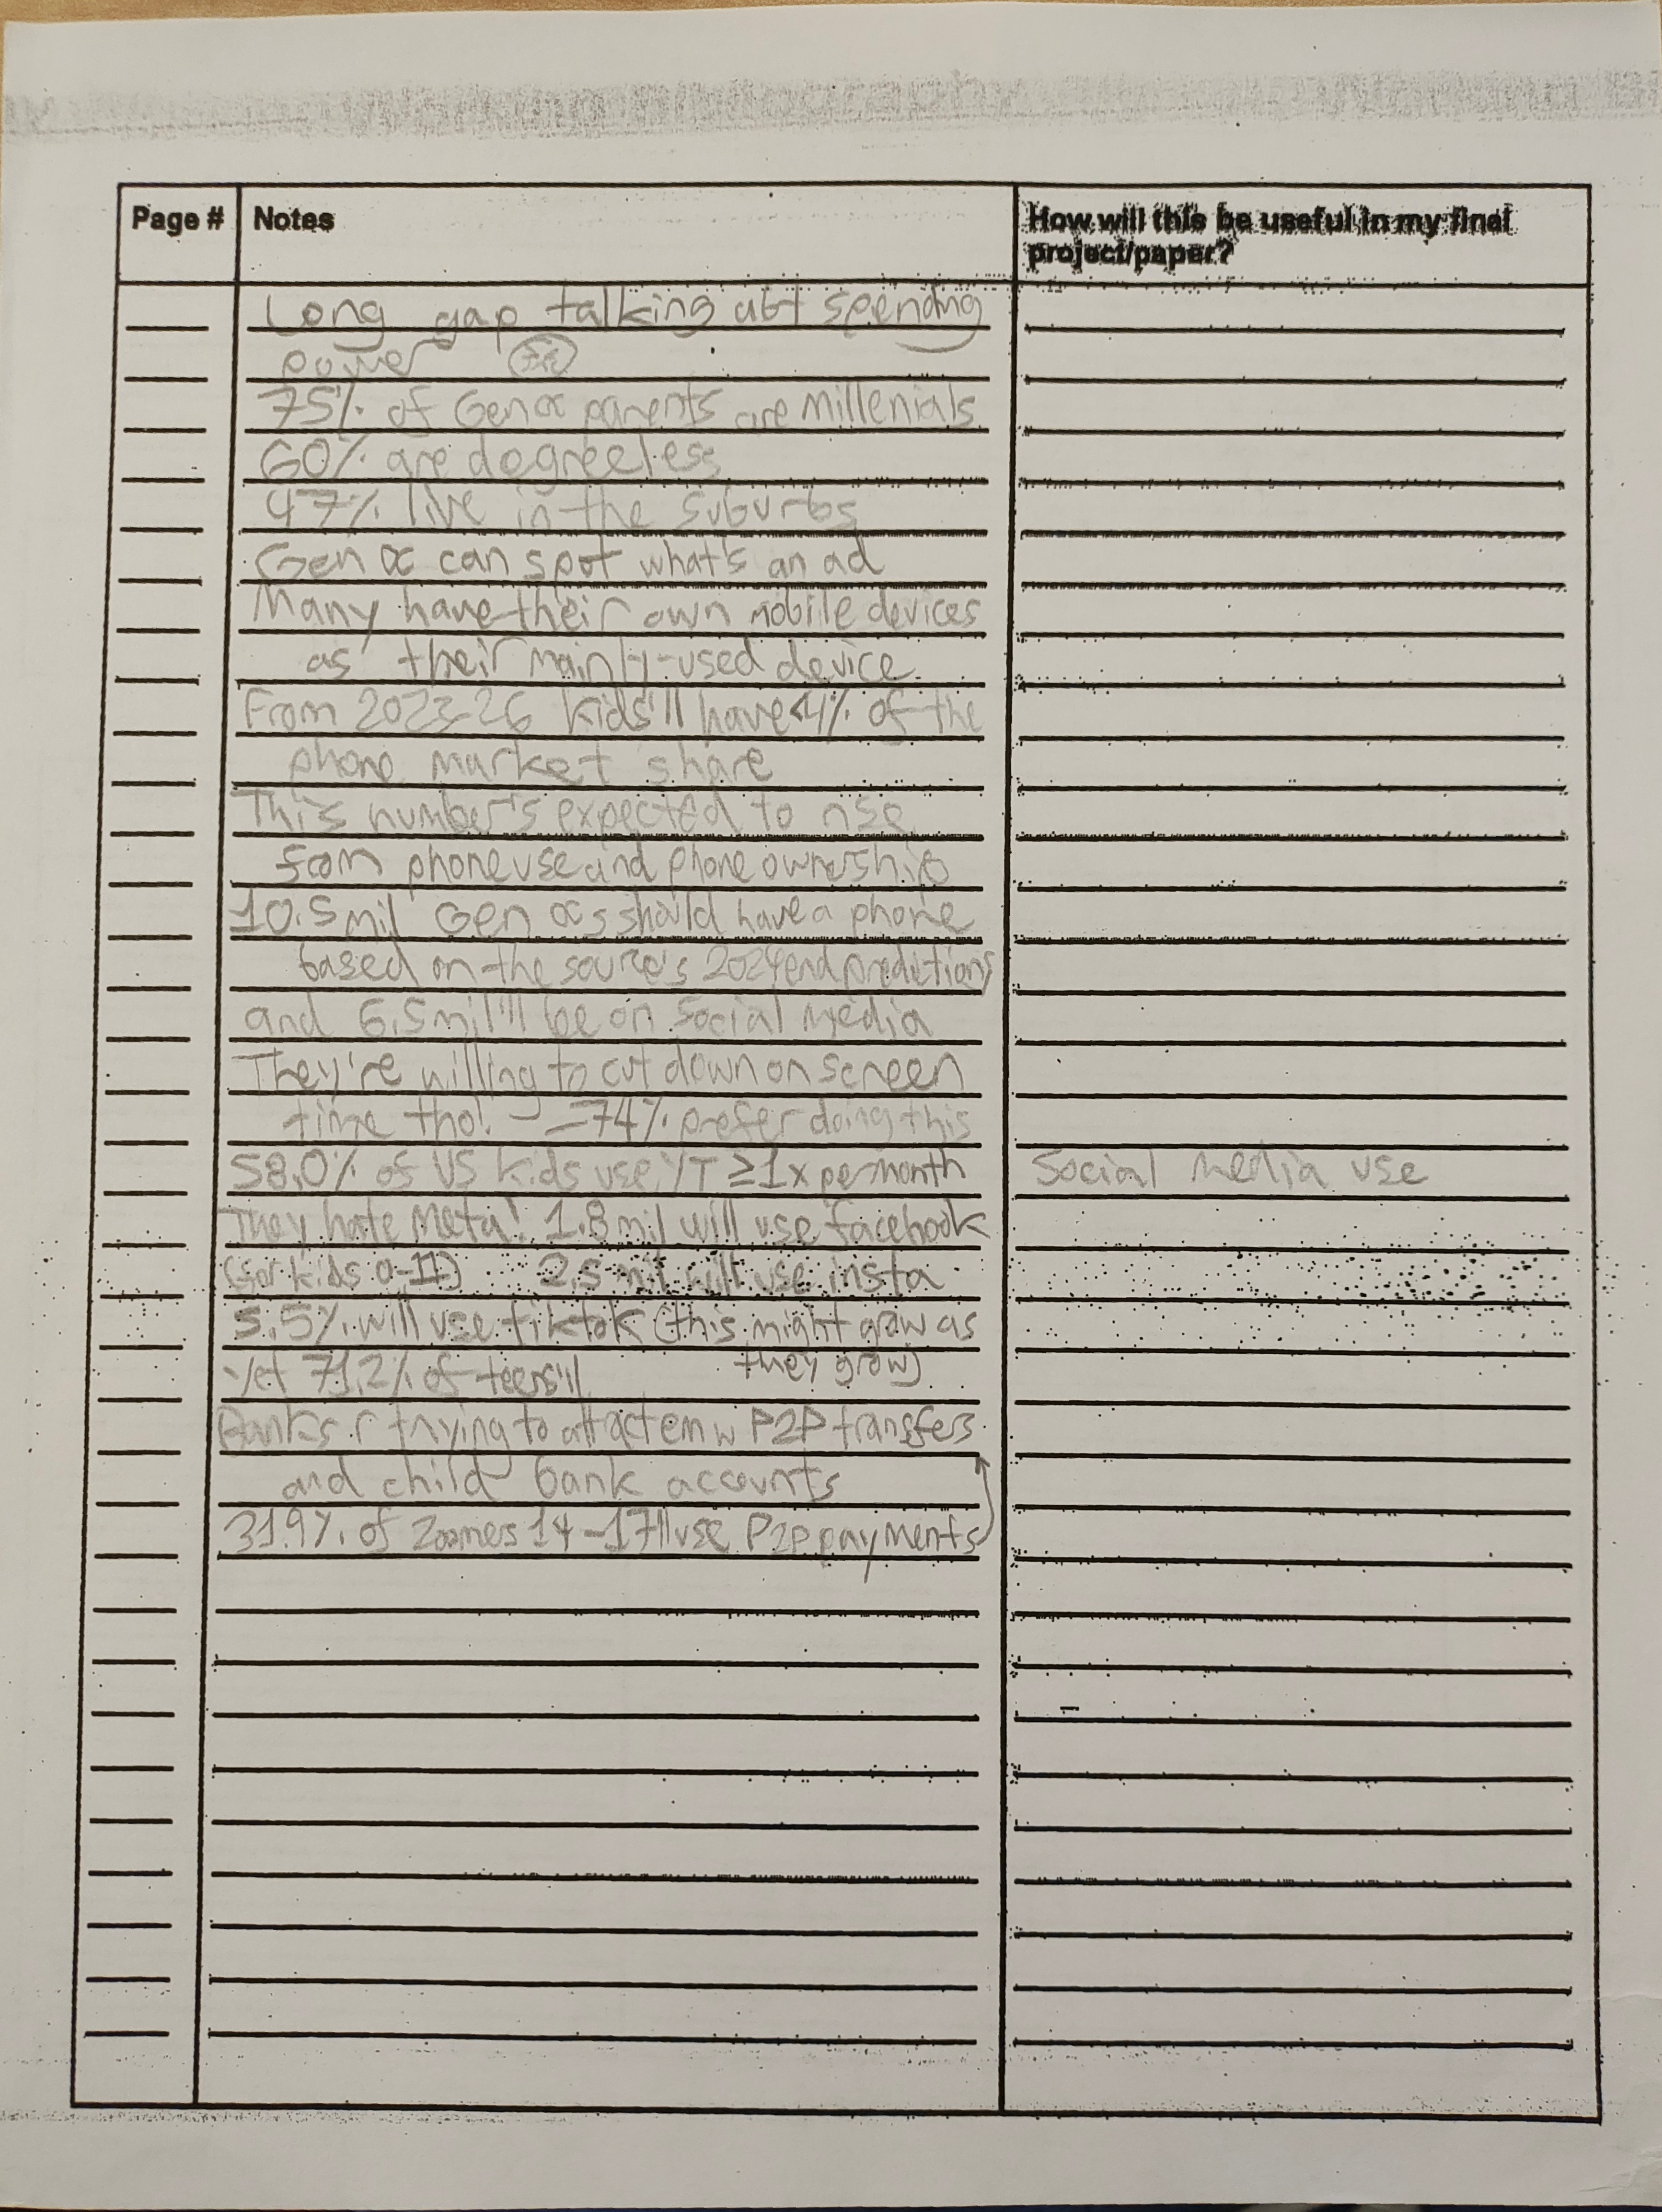 Page #
Notes
How will this be useful in my final
project/paper?
Long gap talking abt spending
power
75% of Gen α parents are millenials
60% are degreeless
47% live in the suburbs
Gen α can spot what's an ad
Many have their own mobile devices
as their mainly-used device
From 2023-26 kids'll have <4% of the
phone market share
This number's expected to rise
from phone use and phone ownership
10.5 mil Gen αs should have a phone
based on the source's 2024 end predictions
and 6.5 mil'll be on social media
They're willing to cut down on screen
time tho! - =74% prefer doing this
58.0% of US kids use YT ≥1x per month
Social media use
They hate Meta! 1.8 mil will use facebook
(for kids 0-11) 2.5 mil will use insta
5.5% will use tiktok (this might grow as
they grow)
Yet 71.2% of teens'll
Banks r trying to attract em w P2P transfers
and child bank accounts
31.9% of Zoomers 14-17'll use P2P payments